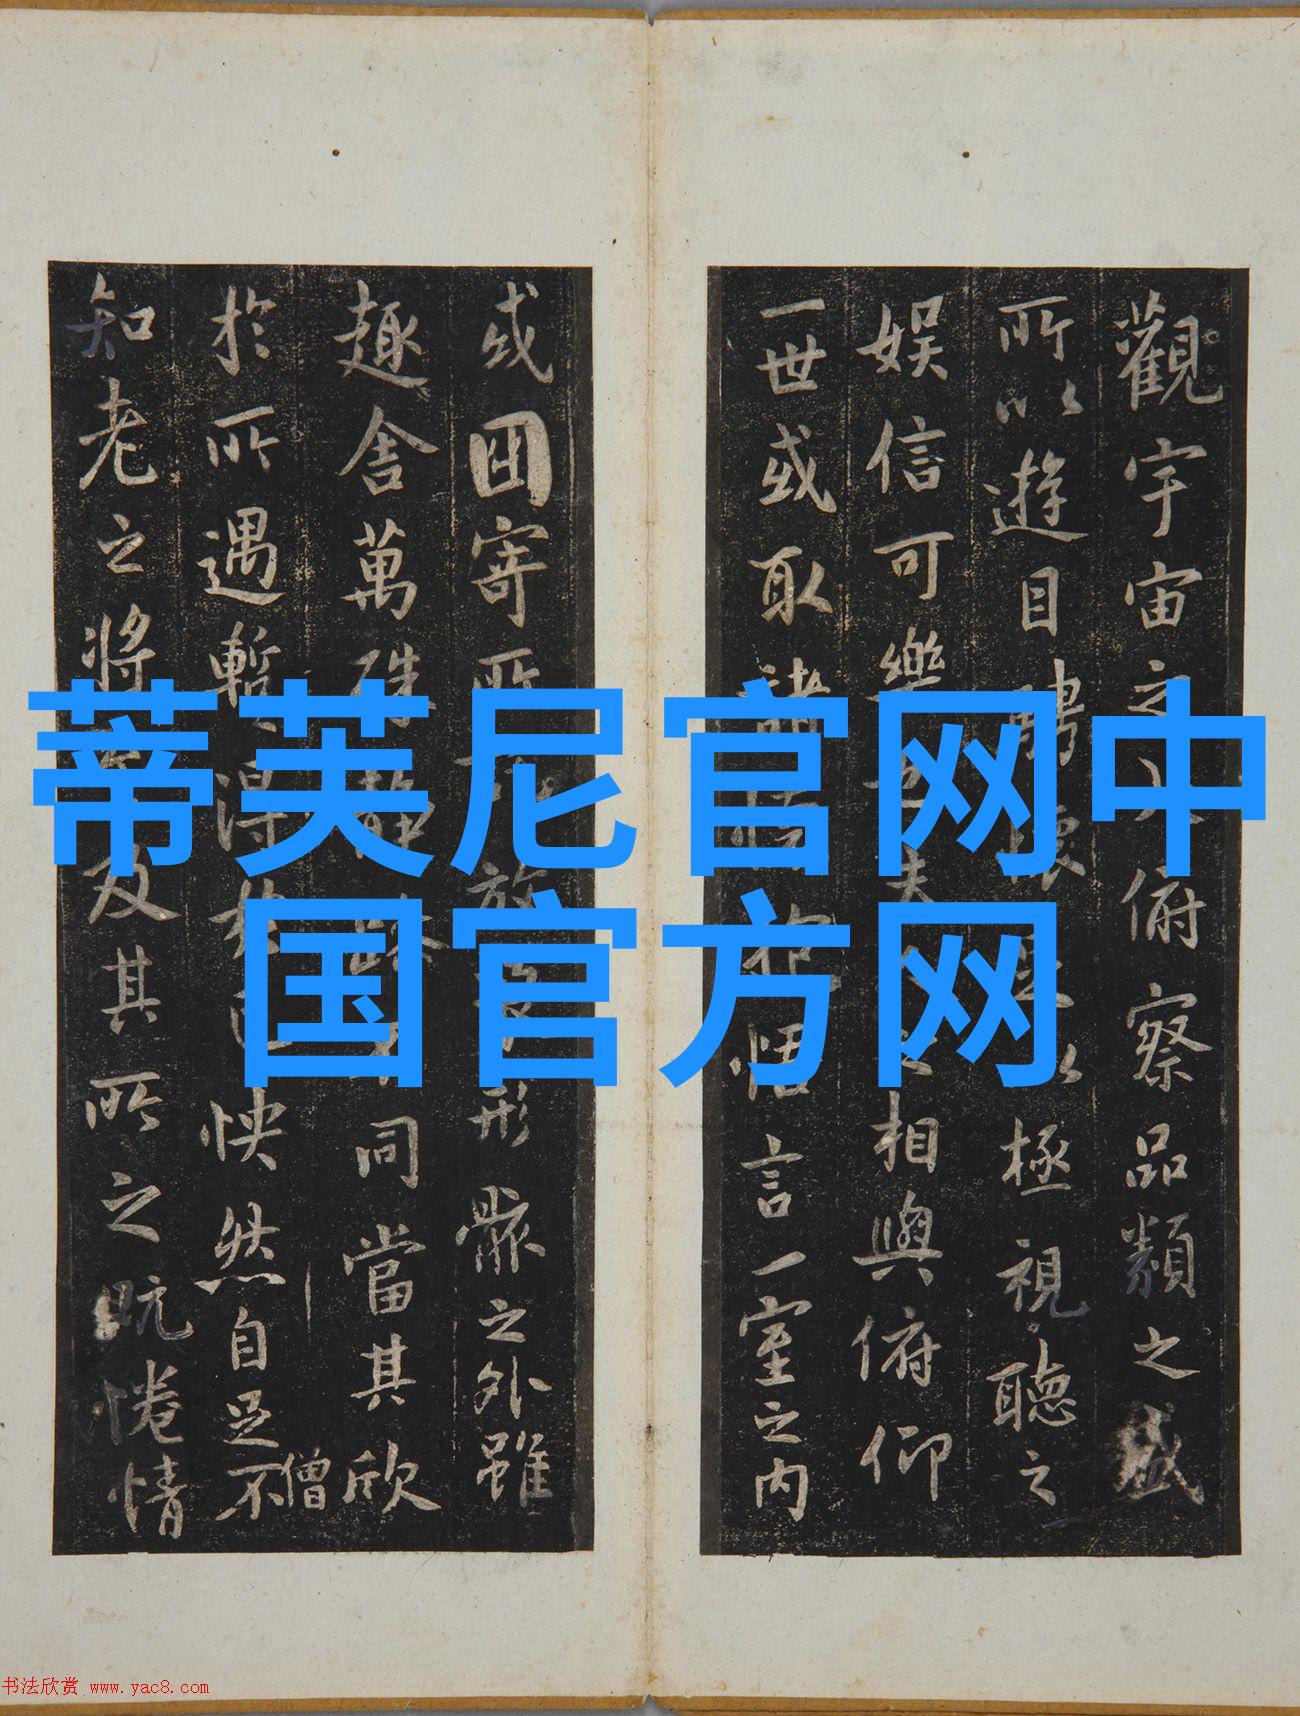 蒂芙尼官网中
国官方网
觀宇宙之大俯察品類之盛
所以遊目騁懷足以極視聽之
娛信可樂也夫人之相與俯仰
一世或取諸懷抱悟言一室之內
或因寄所託放浪形骸之外雖
趣舍萬殊靜躁不同當其欣
於所遇暫得於己怏然自足不
僧
知老之將至及其所之既惓情
书法欣赏 www.yac8.com